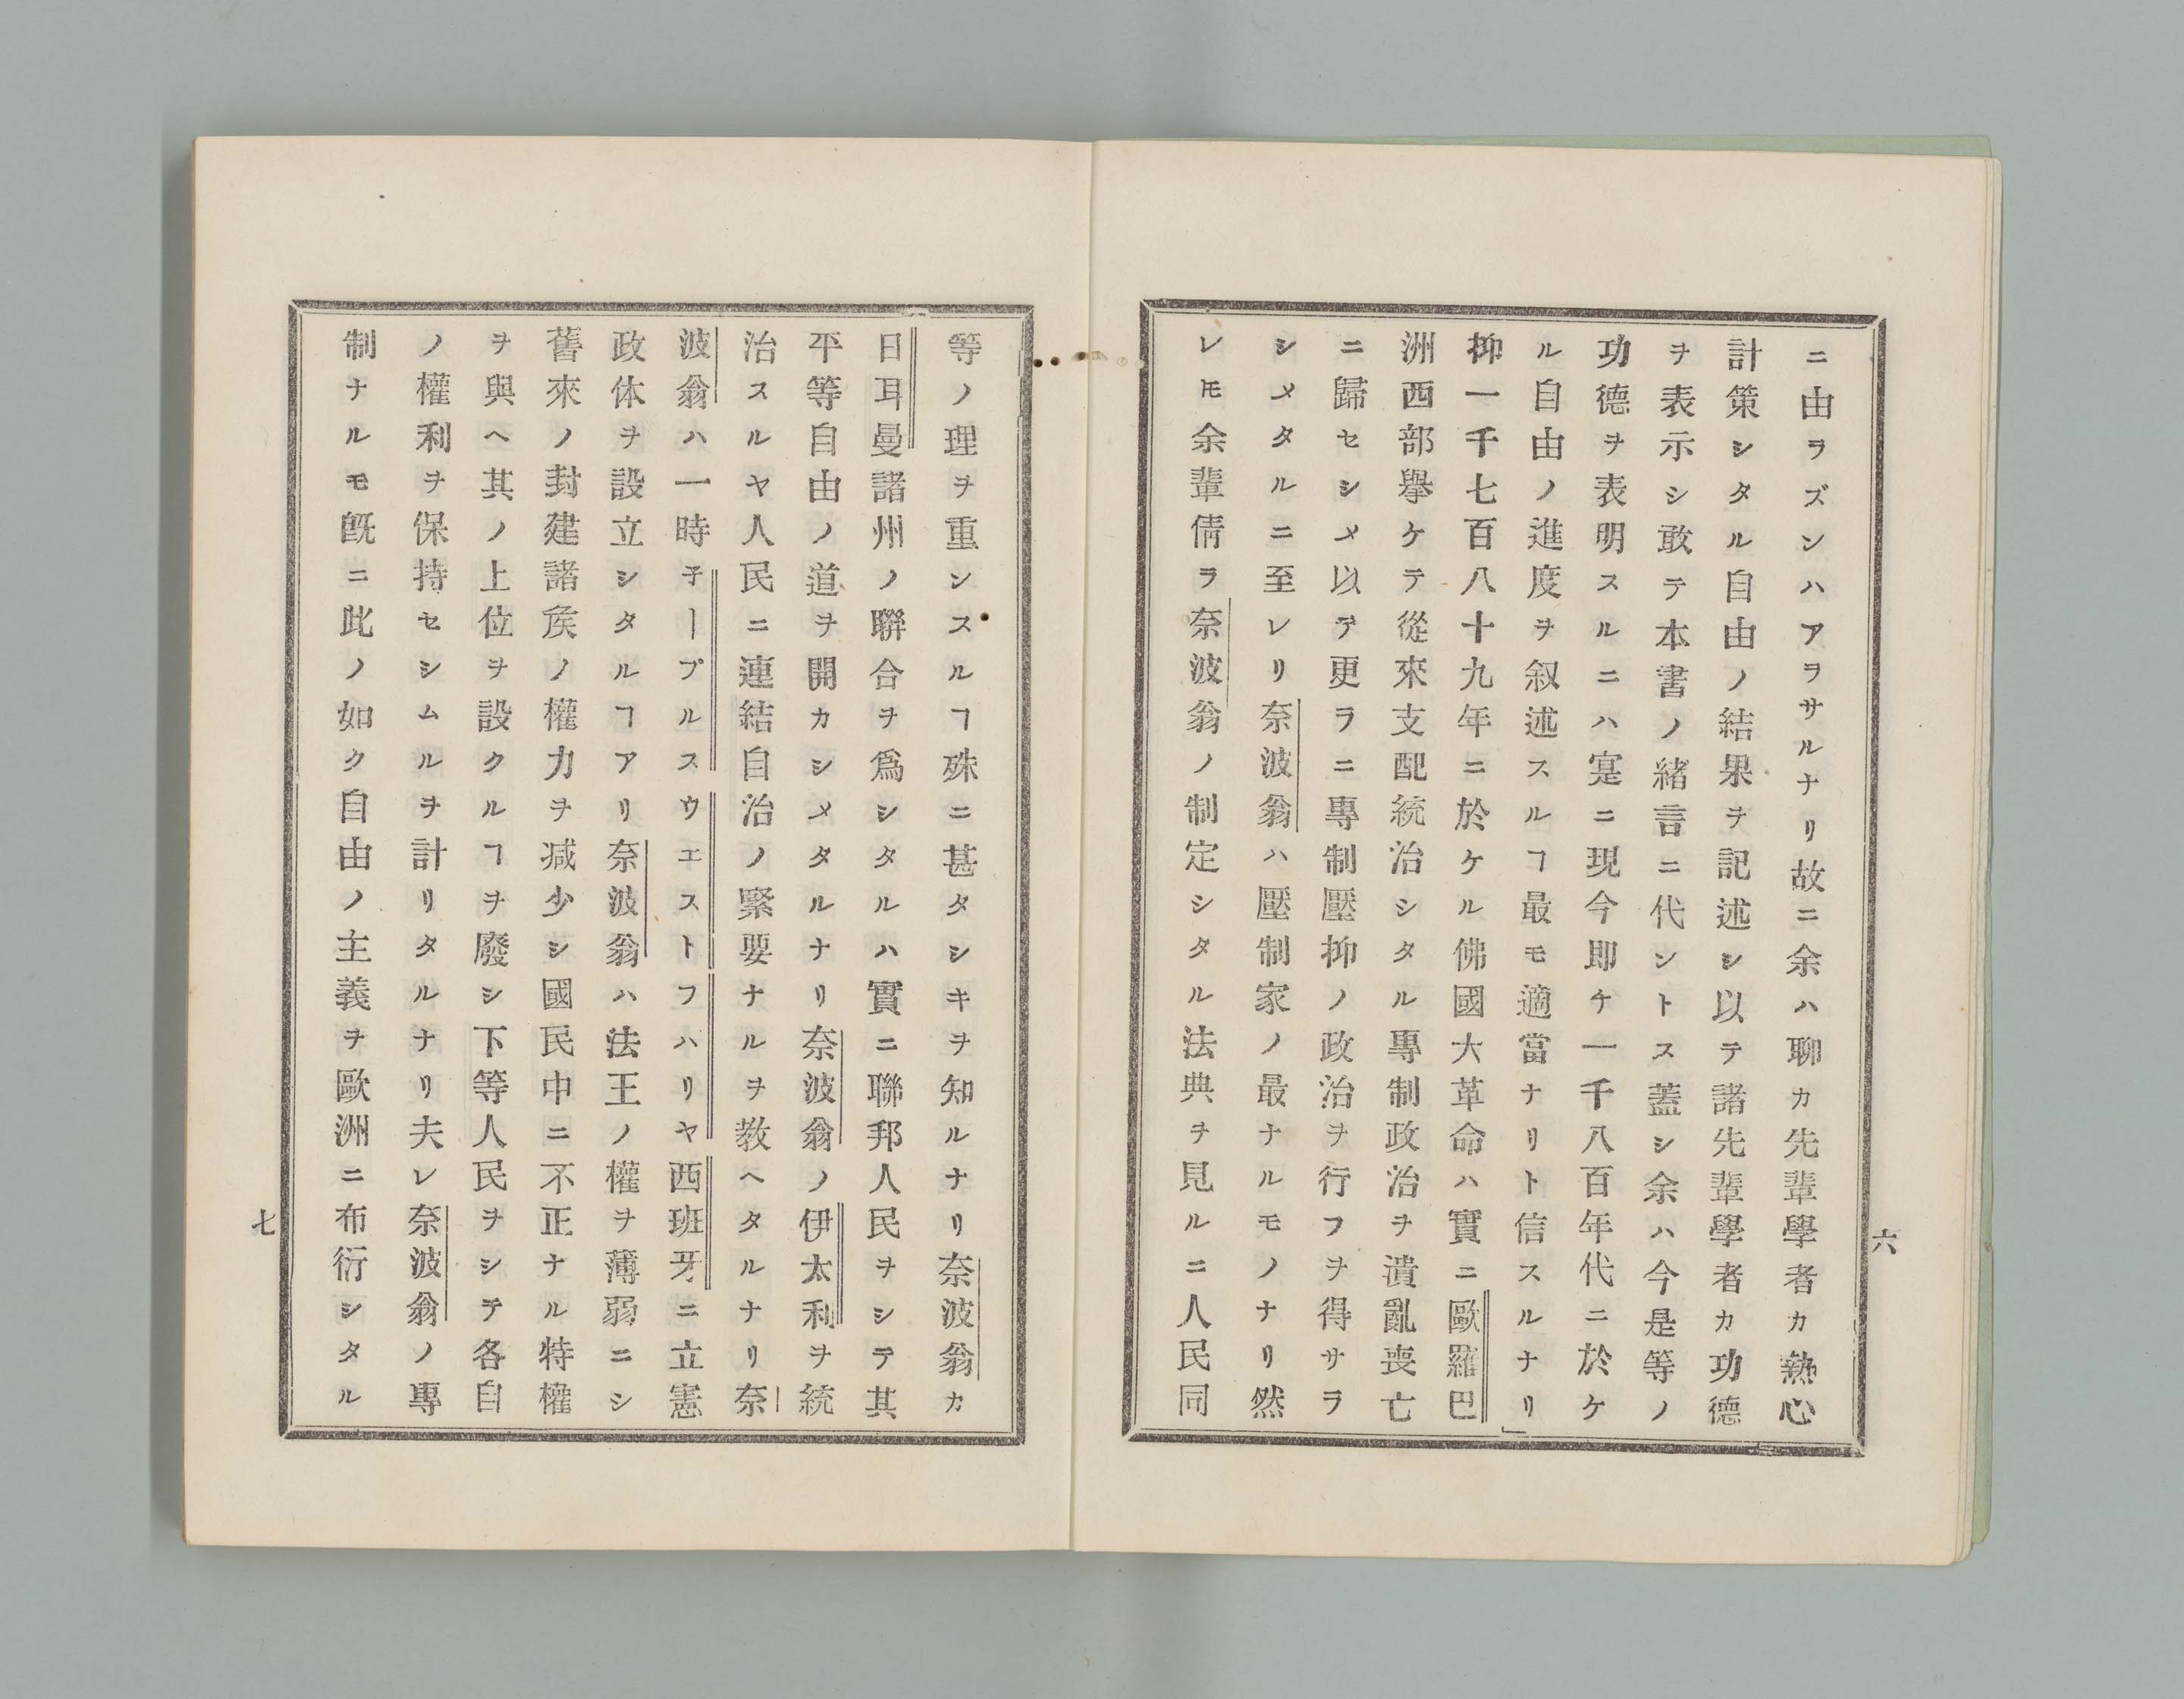 ニ由ラズンハアヲサルナリ故ニ余ハ聊カ先輩學者カ熱心
計策シタル自由ノ結果ヲ記述シ以テ諸先輩學者カ功德
ヲ表示シ敢テ本書ノ緒言ニ代ントス蓋シ余ハ今是等ノ
功德ヲ表明スルニハ寔ニ現今即ケ一千八百年代ニ於ケ
ル自由ノ進度ヲ叙述スルヿ最モ適當ナリト信スルナリ」
抑一千七百八十九年ニ於ケル佛國大革命ハ實ニ歐羅巴
洲西部擧ケテ從來支配統治シタル專制政治ヲ潰亂喪亡
ニ歸セシメ以テ更ラニ專制壓抑ノ政治ヲ行フヲ得サラ
シメタルニ至レリ奈波翁ハ壓制家ノ最ナルモノナリ然
レ𪜈余輩倩ラ奈波翁ノ制定シタル法典ヲ見ルニ人民同
六
等ノ理ヲ重ンスルヿ殊ニ甚タシキヲ知ルナリ奈波翁カ
日耳曼諸州ノ聯合ヲ爲シタルハ實ニ聯邦人民ヲシテ其
平等自由ノ道ヲ開カシメタルナリ奈波翁ノ伊太利ヲ統
治スルヤ人民ニ連結自治ノ緊要ナルヲ教ヘタルナリ奈
波翁ハ一時子ープルスウエストフハリヤ西班牙ニ立憲
政体ヲ設立シタルヿアリ奈波翁ハ法王ノ權ヲ薄弱ニシ
舊來ノ封建諸矦ノ權力ヲ减少シ國民中ニ不正ナル特權
ヲ與ヘ其ノ上位ヲ設クルヿヲ廢シ下等人民ヲシテ各自
ノ權利ヲ保持セシムルヲ計リタルナリ夫レ奈波翁ノ專
制ナルモ旣ニ此ノ如ク自由ノ主義ヲ歐洲ニ布衍シタル
七